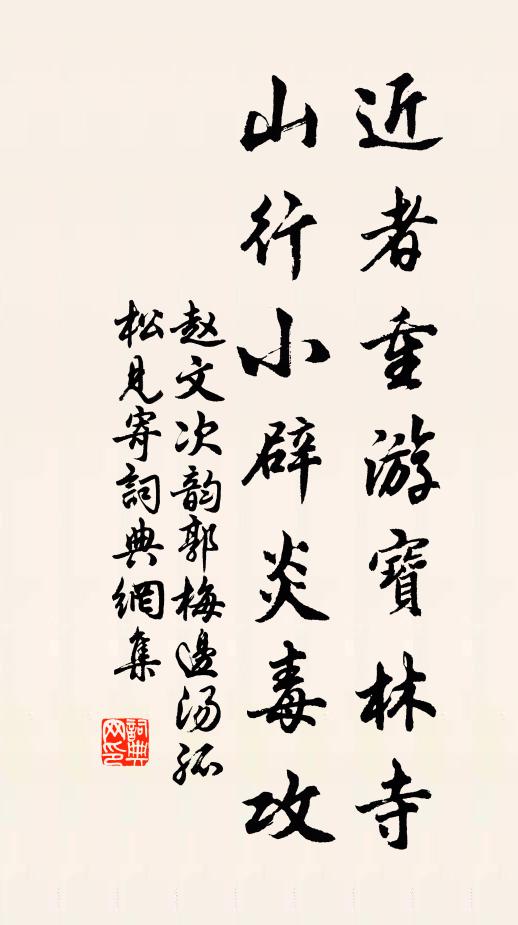 近者重游寶林寺
山行小辟炎毒攻
赵文次韵郭梅邊汤孤
松見寄詞典網集
詞典
网印